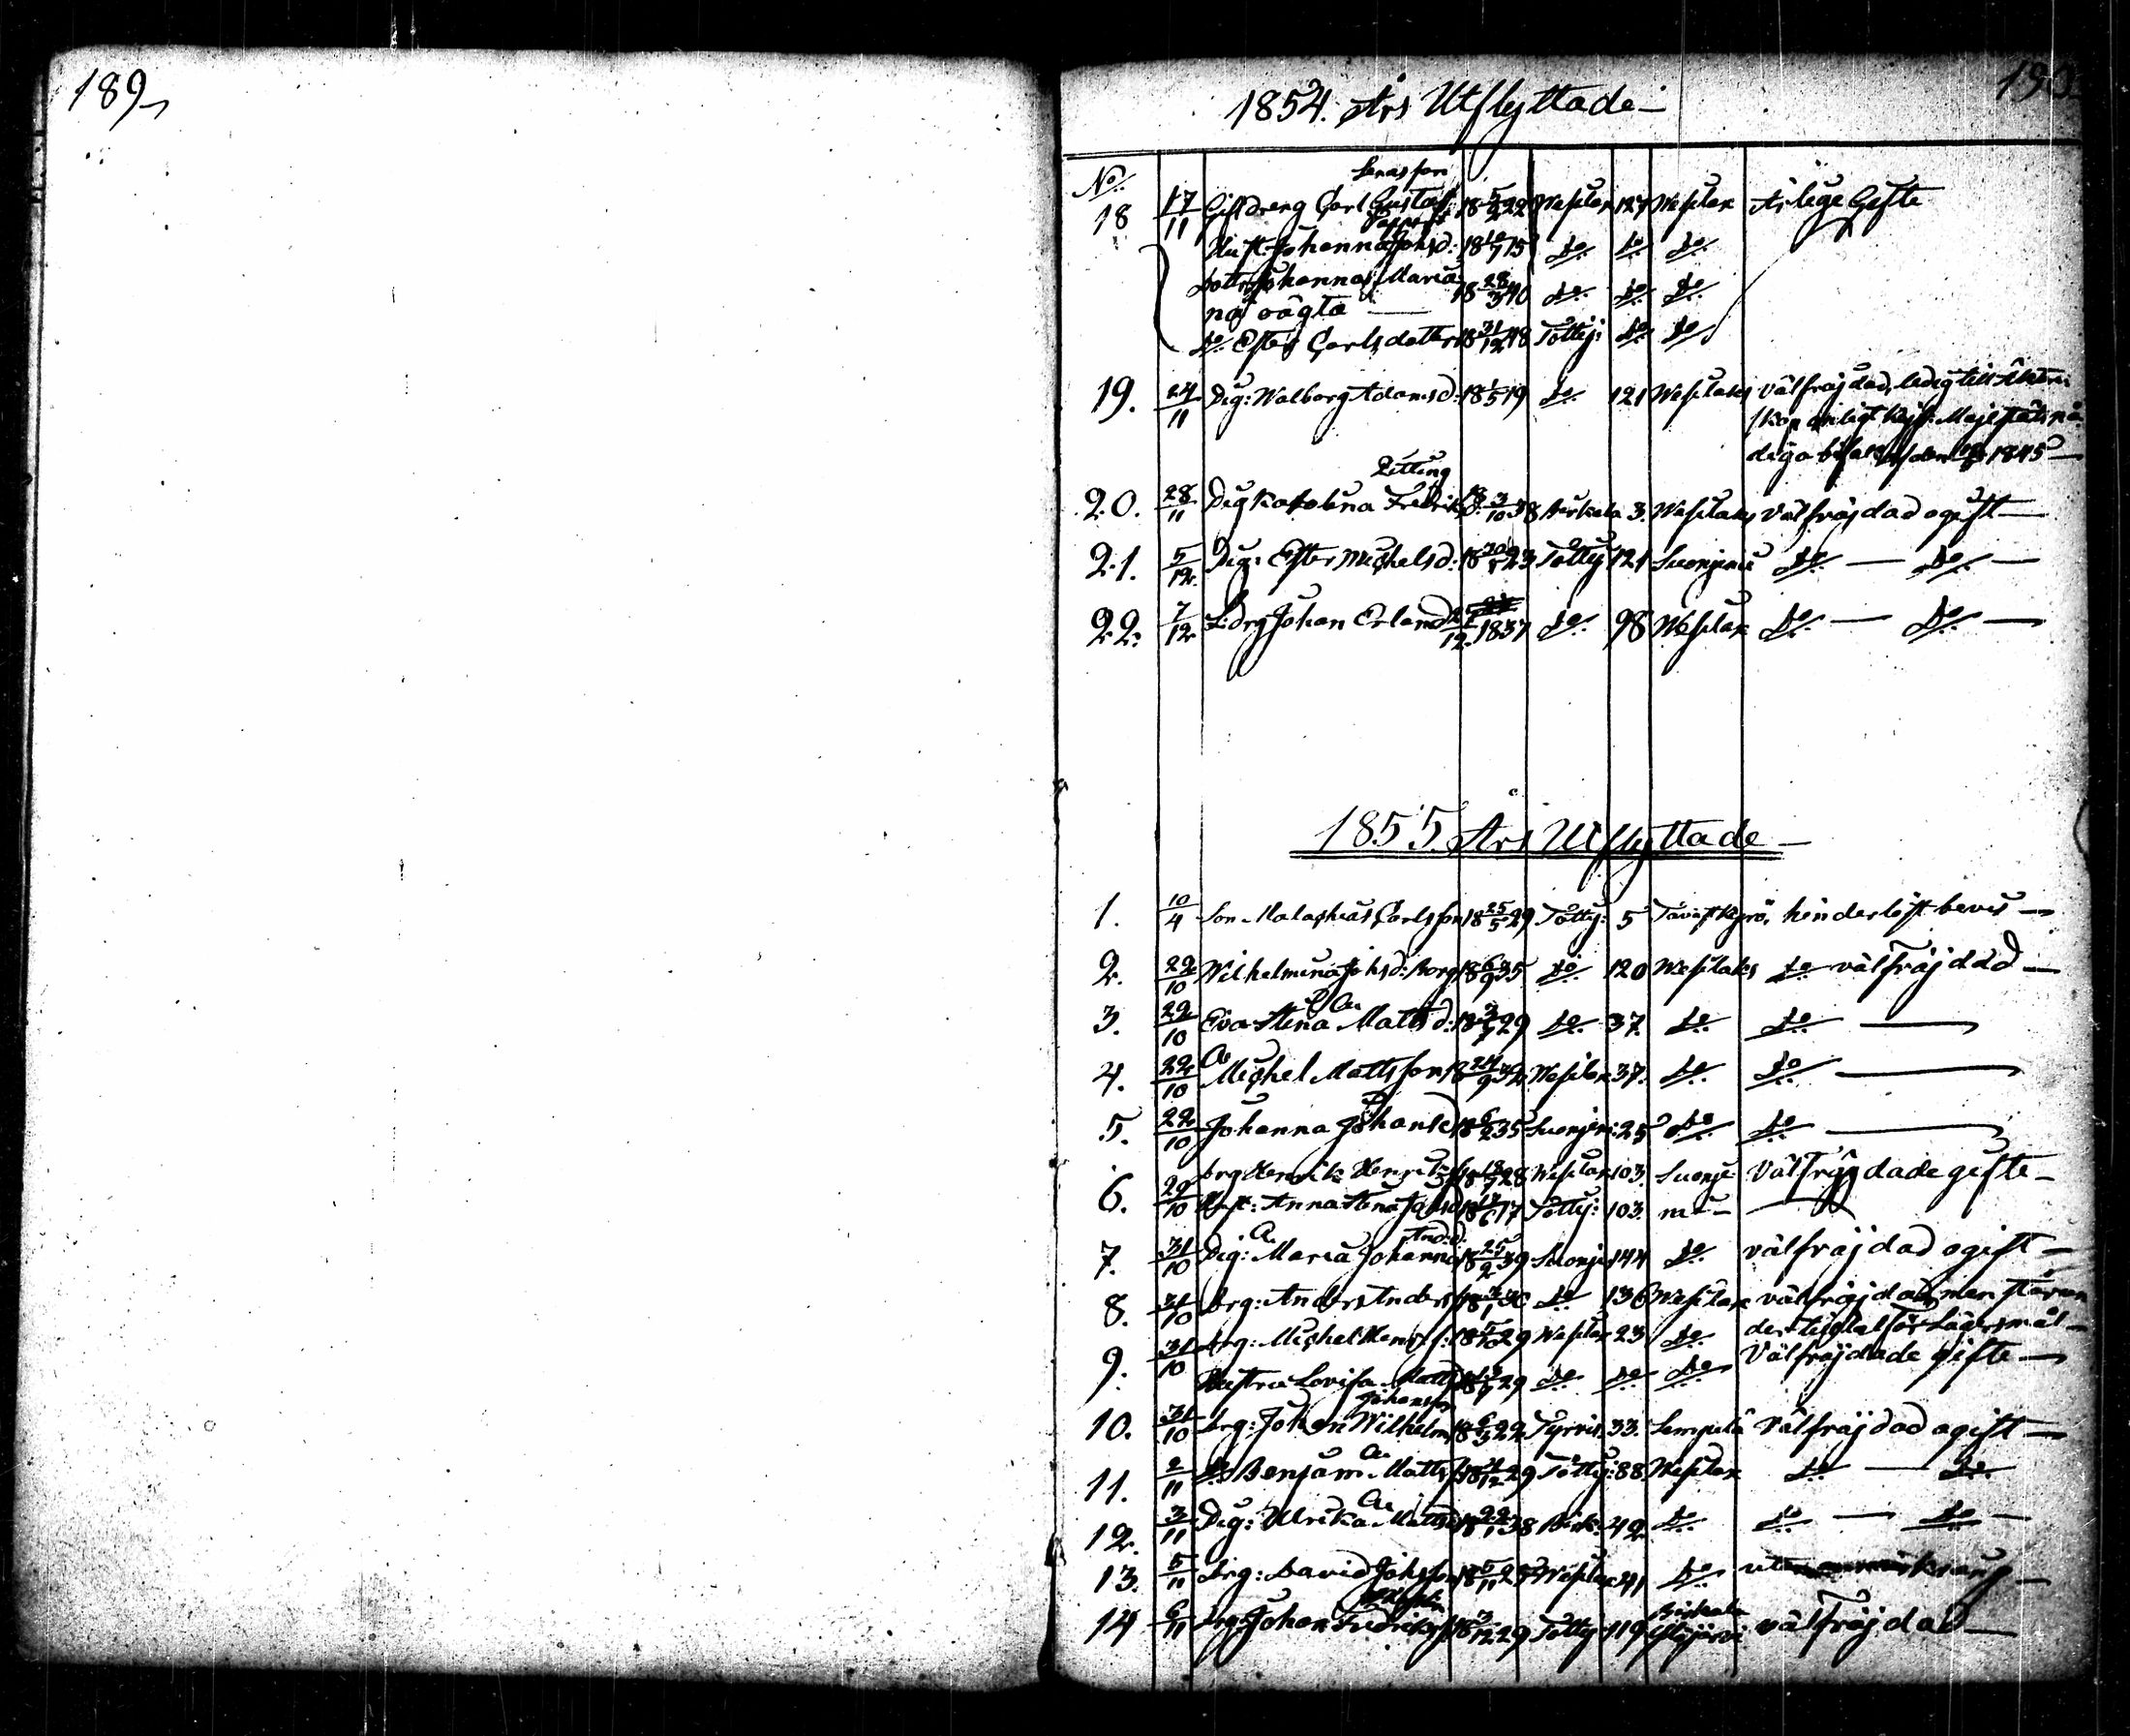 189
190
1854. Års Utflyttade
No
Lenasson
18 17/11 Giftdreng Carl Gustaf 18 5/2 22 Wesilax 127 Wesilax Ärlige Gifte
Hust: Johanna Johsd: 18 10/7 15 Do Do Do
Dottr Johanna Maria 18 28/3 40 Do Do Do
na oägta
Do Ester Carlsdotter 18 31/12 48 Tottij: Do Do
19. 24/11 Pig: Walborg Adamsd: 18 1/5 19 Do 121 Wesilaks välfräjdad, ledig till äkten-
skap enligt Kejs: Majestäts nå-
diga 1845
Zitting
20. 28/11 Pig Katolina Fredriksd: 18 3/10 38 Birkala 3. Wesilaks Välfräjdad ogift
21. 5/12 Pig: Ester Michelsd: 18 20/1 23 Tottij 121 Suonjemi Do Do
22. 7/12 L:drg Johan Erland 12 1837 Do 98 Wesilax Do Do
1855. Års Utflyttade
1. 10/4 Son Malachias Carlsson 18 25/5 29 Tottij: 5 Tavastkyrö, hinderlöst bevis
2. 22/10 Wilhelmina Johsd: Borg 18 6/9 35 Do 120 Wesilaks Do välfräjdad
3. 22/10 Eva Stina Mattsd: 18 3/7 29 Do 37. Do Do
4. 22/10 Michel Mattsson 18 24/9 32 Wesilax 37. Do Do
5. 22/10 Johanna Johansd 18 6/2 35 Suonjemi: 25 Do Do
6. 29/10 Drg Henrik Henriks 18 18/7 28 Wesilax 103. Suonje Välfräjdade gifte
Hust: Anna Stina Johsd 18 6 17 Tottij: 103. mi
And:d:
7. 31/10 Pig: Maria Johanna 18 25/2 39 Suonje 144 Do välfräjdad ogift
8. 31/10 Drg: Anders Anders 18 1 36 Do 136 Wesilax välfräjdad, men står un
der tilltal för Lägersmål
9. 31/10 Drg: Michel Henr:s: 18 5/10 29 Wesilax 23 Do Välfräjdade gifte
Hustru Lovisa Mattsd 18 7 29 Do Do Do
Johansson
10. 31/10 Drg: Johan Wilhelm 18 6/3 22 Tyrvis 33. Lempälä Välfräjdad ogift
11. 2/11 Do Benjam. Mattss 18 4/12 29 Tottij: 88. Wesilax Do Do
12. 3/11 Pig: Ulrika Mattsd 18 22/1 38 Birk: 42 Do Do Do
13. 5/11 Drg: David Johsson 18 5/11 25 Wesilax 41 Do
14 6/11 Drg: Johan Fredrikss 18 3/12 29 Tottij 119 Birkala Ylöjärvi välfräjdad